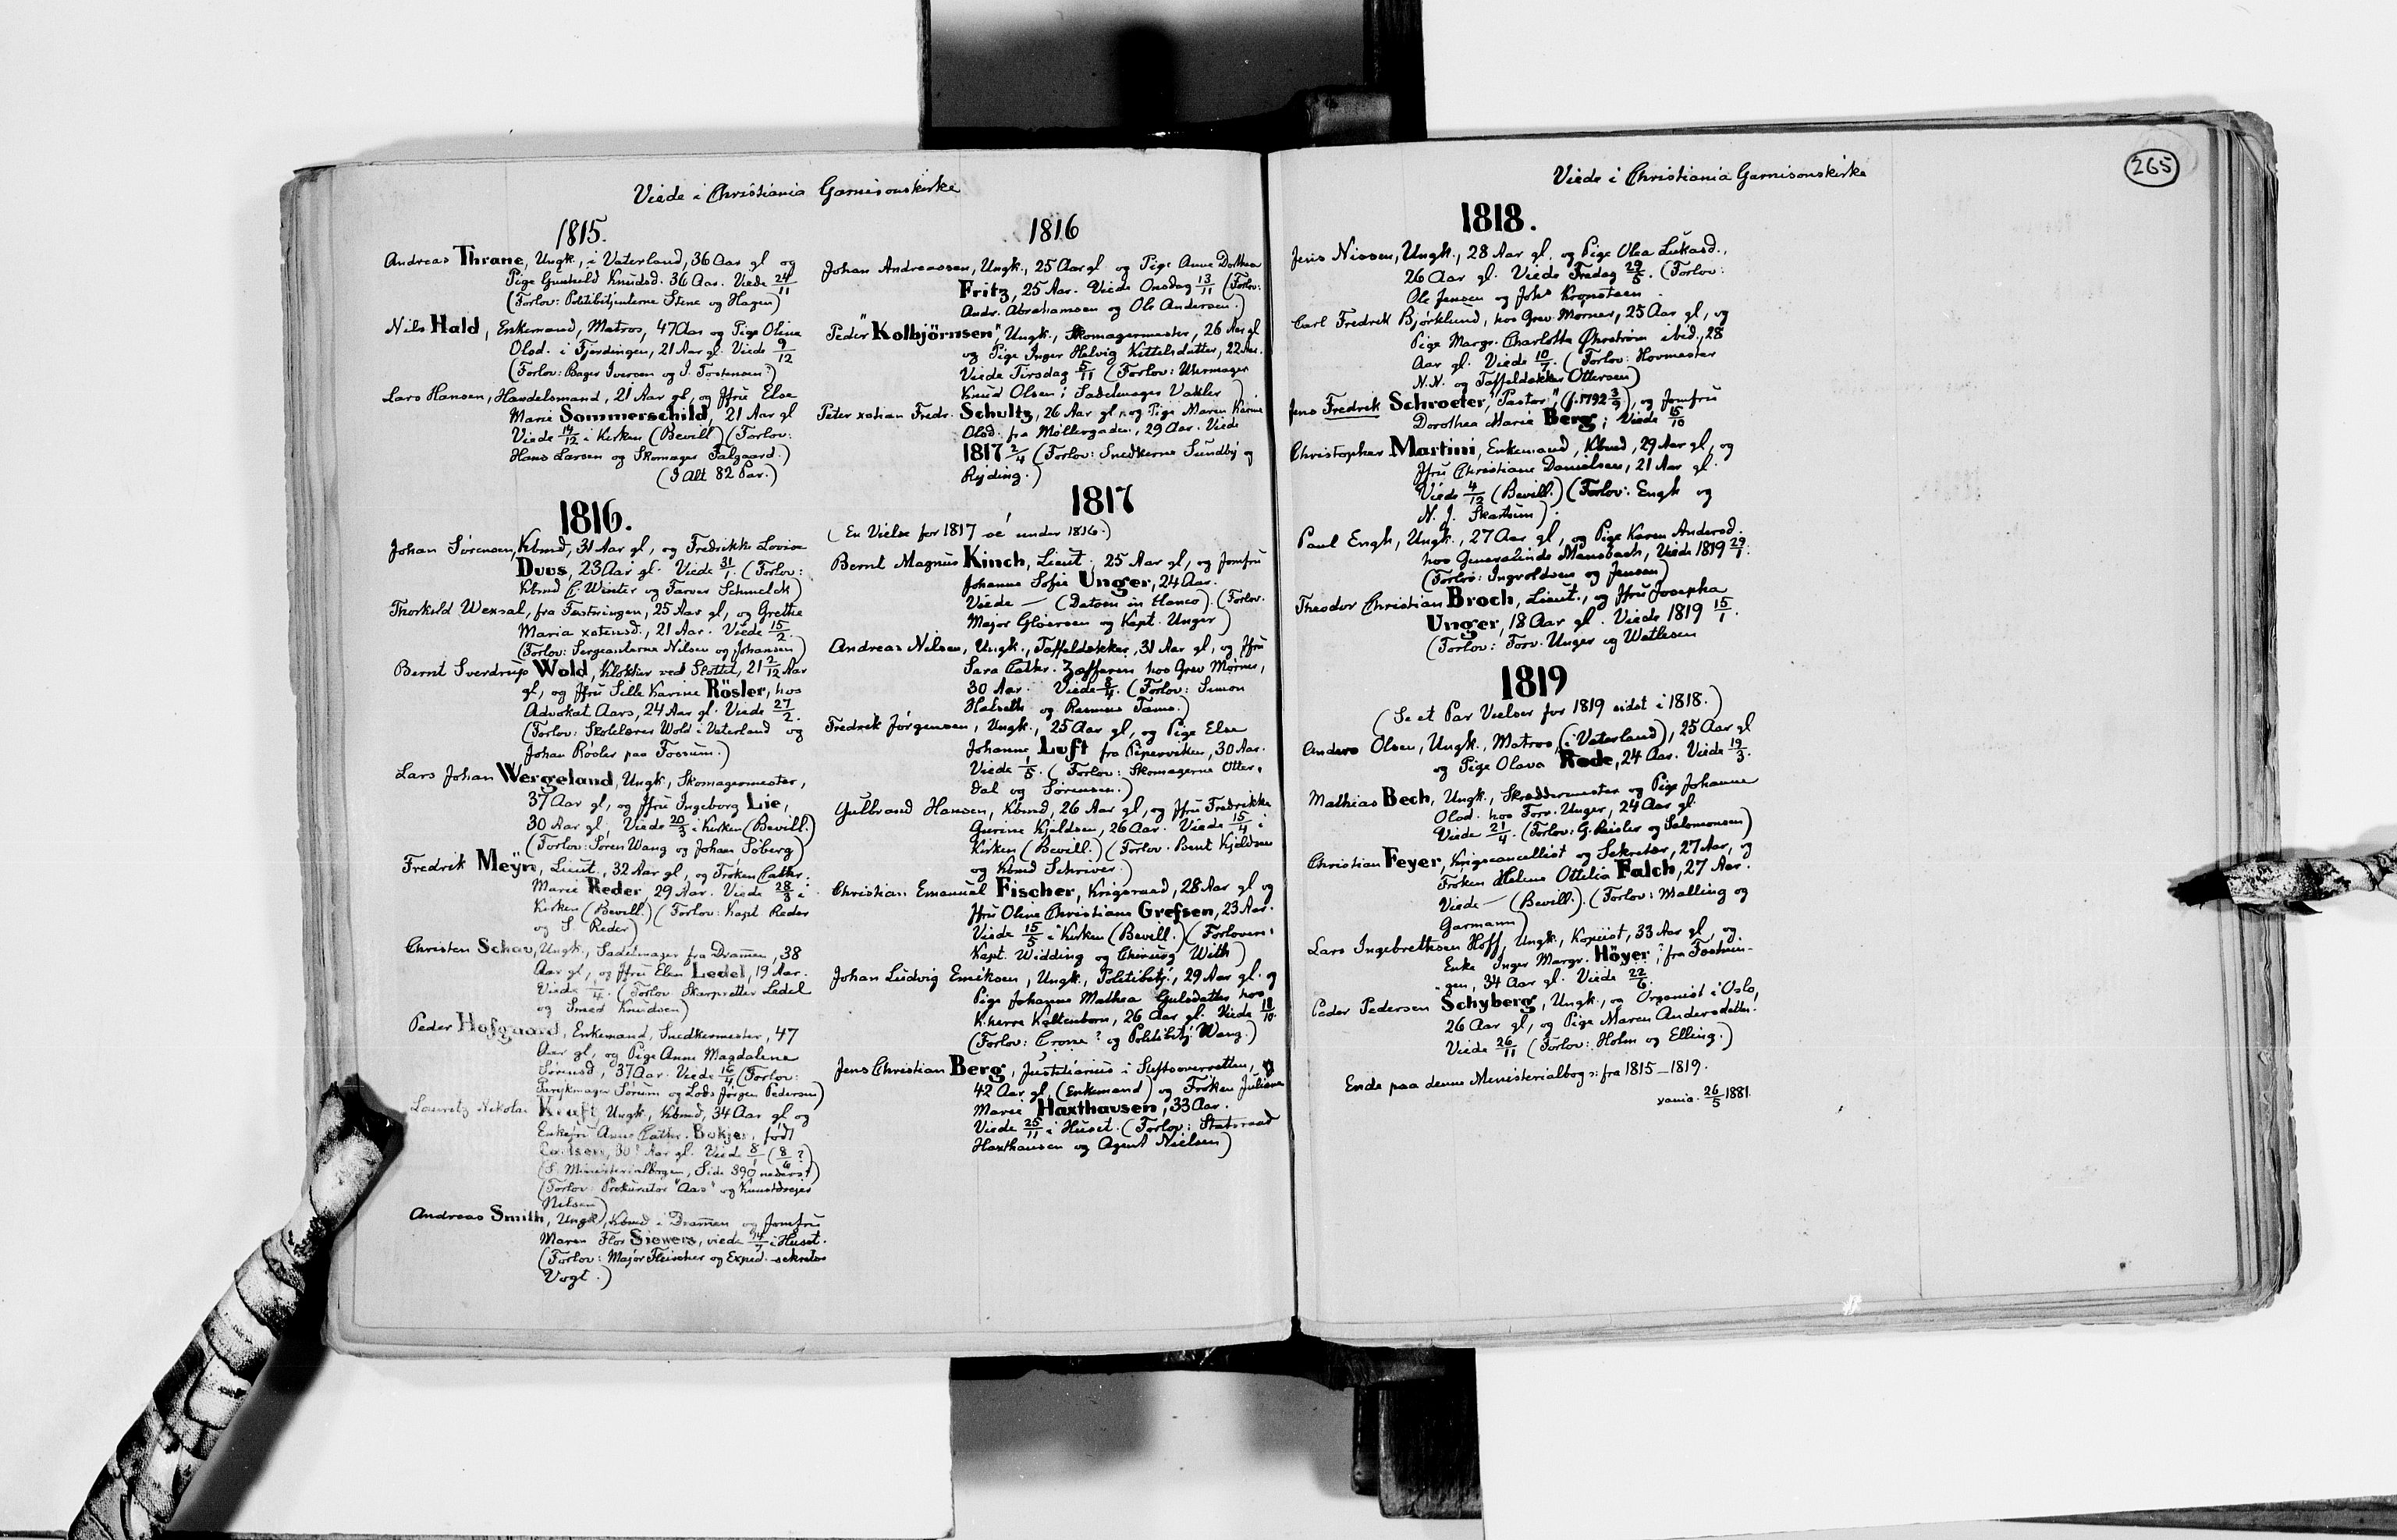 Viede i Christiania Garnisonskirke
1815.
Andreas Thrane, Ungk., i Vaterland, 36 Aar gl og
Pige Gunhild Knudsd. 36 Aar. Viede 24/11
(Forlov: Politibetjenterne Stene og Hagen)
Nils Hald, Enkemand, Matros, 47 Aar og Pige Oline
Olsd. i Fjerdingen, 21 Aar gl. Viede 9/12
(Forlov: Bager Iversen og J. Tostensen?)
Lars Hansen, Handelsmand, 21 Aar gl, og Jfru Else
Marie Sommerschild, 21 Aar gl
Viede 14/12 i Kirken (Bevill) (Forlov:
Hans Larsen og Skomager Falgaard.)
(I Alt 82 Par.)
1816.
Johan Sørensen, Kbmd, 31 Aar gl, og Fredrikke Lovise
Duus, 23 Aar gl. Viede 31/1. (Forlov:
Kbmd C. Winter og Farver Schmelck)
Thorkild Wexsal, fra Fæstningen, 25 Aar gl, og Grethe
Maria xstensd., 21 Aar. Viede 15/2.
(Forlov: Sergeanterne Nilsen og Johansen)
Bernt Sverdrup Wold, Klokker ved Slottet, 21 2/12 Aar
gl, og Jfru Sille Karine Rösler, hos
Advokat Aars, 24 Aar gl. Viede 27/2.
(Forlov: Skolelærer Wold i Vaterland og
Johan Rösler paa Fossum.)
Lars Johan Wergeland, Ungk, Skomagermester,
37 Aar gl, og Jfru Ingeborg Lie,
30 Aar gl, Viede 20/3 i Kirken (Bevill.)
(Forlov: Søren Wang og Johan Søberg)
Fredrik Meÿn, Lieut., 32 Aar gl, og Frøken Cathr.
Marie Reder, 29 Aar. Viede 28/3 i
Kirken (Bevill.) (Forlov: Kapt Reder
og S. Reder)
Christen Schau, Ungk., Sadelmager fra Dramen, 38
Aar gl, og Jfru Elen Ledel, 19 Aar.
Viede 1/4. (Forlov Skarpretter Ledel
og Smed Knudsen)
Peder Hofgaard, Enkemand, Snedkermester, 47
Aar gl, og Pige Anne Magdalene
Sørensd, 37 Aar. Viede 16/4 (Forlov:
Parykmager Sørum og Lods Jørgen Pedersen)
Lauritz Nikolai Kraft, Ungk, Kbmd, 34 Aar gl og
Enkefru Anne Cathr. Bokjer, født
30? Aar gl. Viede 8/1 (8/4?)
(S. Ministerialbogen, Side 390 nederst)
(Forlov: Prokurator "Aas" og Kunstdrejer
Nilsen)
Andreas Smith, Ungk, Kbmd i Dramen og Jomfru
Maren Flor Siewers, viede 24/7 i Huset.
(Forlov: Major Fleischer og Exped. sekretær
Vogt.)
1816
Johan Andreassen, Ungk., 25 Aar gl og Pige Anne Dorthea
Fritz, 25 Aar. Viede Onsdag 13/11 (Forlov:
Andr. Abrahamsen og Ole Andersen.)
Peder "Kolbjörnsen", Ungk., Skomagermester, 26 Aar gl
og Pige Inger Helvig Kittelsdatter, 22 Aar.
Viede Tirsdag 5/11 (Forlov: Uhrmager
Knud Olsen i Sadelmager Vakler)
Peter xstian Fredr. Schultz, 26 Aar gl, og Pige Maren Karine
Olsd. fra Møllergaden, 29 Aar. Viede
1817 2/4 (Forlov: Snedkerne Sundby og
Ryding.)
1817
(En Vielse for 1817 se under 1816.)
Bernt Magnus Kinch, Lieut., 25 Aar gl, og Jomfru
Johanne Sofie Unger, 24 Aar.
Viede — (Datoen in blanco). (Forlov.
Major Gløersen og Kapt. Unger)
Andreas Nilsen, Ungk., Taffeldekker, 31 Aar gl, og Jfru
Sara Cathr. Zafferen hos Grev Mørner,
30 Aar. Viede 8/4. (Forlov: Simon
Halseth og Rasmus Tams.)
Fredrik Jørgensen, Ungk., 25 Aar gl, og Pige Else
Johanne Luft fra Piperviken, 30 Aar.
Viede 1/5. (Forlov: Skomagerne Otter,
dal og Sørensen.)
Gulbrand Hansen, Kbmd, 26 Aar gl, og Jfru Fredrikke
Gurine Kjeldsen, 26 Aar. Viede 15/4 i
Kirken (Bevill.) (Forlov. Bent Kjeldsen
og Kbmd Schriver.)
Christian Emanuel Fischer, Krigsraad, 28 Aar gl og
Jfru Oline Christiane Grefsen, 23 Aar.
Viede 15/5 i Kirken (Bevill.) (Forlovere:
Kapt. Widding og Chirurg With)
Johan Ludvig Emiksen, Ungk., Politibetj., 29 Aar gl. og
Pige Johanne Mathea Gulsdatter hos
K.herre Kaltenborn, 26 Aar gl. Viede 18/10.
(Forlov: Crone? og Politibetj Wang.)
Jens Christian Berg, Justitiarius i Stiftsoverretten,
42 Aar gl, (Enkemand) og Frøken Juliane
Marie Haxthausen, 33 Aar.
Viede 25/11 i Huset. (Forlov: Statsraad
Haxthausen og Agent Nielsen)
Viede i Christiania Garnisonskirke
265
1818.
Jens Nissen, Ungk., 28 Aar gl. og Pige Olea Lukasd.,
26 Aar gl. Viede Fredag 29/5. (Forlov:
Ole Jensen og Johs Kronsteen
Carl Fredrik Bjørklund, hos Grev Mørner, 25 Aar gl, og
Pige Margr. Charlotte Øhrström ibid., 28
Aar gl. Viede 10/7. (Forlov: Hovmester
N.N. og Taffeldekker Ottersen)
Jens Fredrik Schroeter, "Pastor" (f. 1792 3/9), og Jomfru
Dorothea Marie Berg; Viede 15/10
Christopher Martini, Enkemand, Kbmd, 29 Aar gl, og
Jfru Christiane Danielsen, 21 Aar gl.
Viede 4/12 (Bevill.) (Forlov: Engh og
N. J. Skartum).
Paul Engh, Ungk., 27 Aar gl, og Pige Karen Andersd.
hos Generalinde Mansbach, Viede 1819 29/1.
(Forlov: Ingvoldsen og Jensen)
Theodor Christian Broch, Lieut., og Jfru Josepha
Unger, 18 Aar gl. Viede 1819 15/1.
(Forlov: Forv. Unger og Watlesen
1819
(Se et Par Vielser for 1819 sidst i 1818.)
Anders Olsen, Ungk., Matros, (i Vaterland), 25 Aar gl
og Pige Olava Rode, 24 Aar. Viede 19/3.
Mathias Bech, Ungk., Skræddermester og Pige Johanne
Olsd. hos Forv. Unger, 24 Aar gl.
Viede 21/4. (Forlov: G. Reisler og Salomonsen)
Christian Feyer, Krigscancellist og Sekretær, 27 Aar, og
Frøken Helene Ottilia Falch, 27 Aar.
Viede — (Bevill.). (Forlov: Malling og
Garmann)
Lars Ingebrethsen Hoff, Ungk., Kopiist, 33 Aar gl, og
Enke Inger Margr. Höyer? fra Fæstnin-
gen, 34 Aar gl. Viede 22/6.
Peder Pedersen Schyberg, Ungk., og Organist i Oslo,
26 Aar gl, og Pige Maren Andersdatter.
Viede 26/11 (Forlov: Holm og Elling.)
Ende paa denne Ministerialbog ɔ: fra 1815–1819.
xania. 26/5 1881.